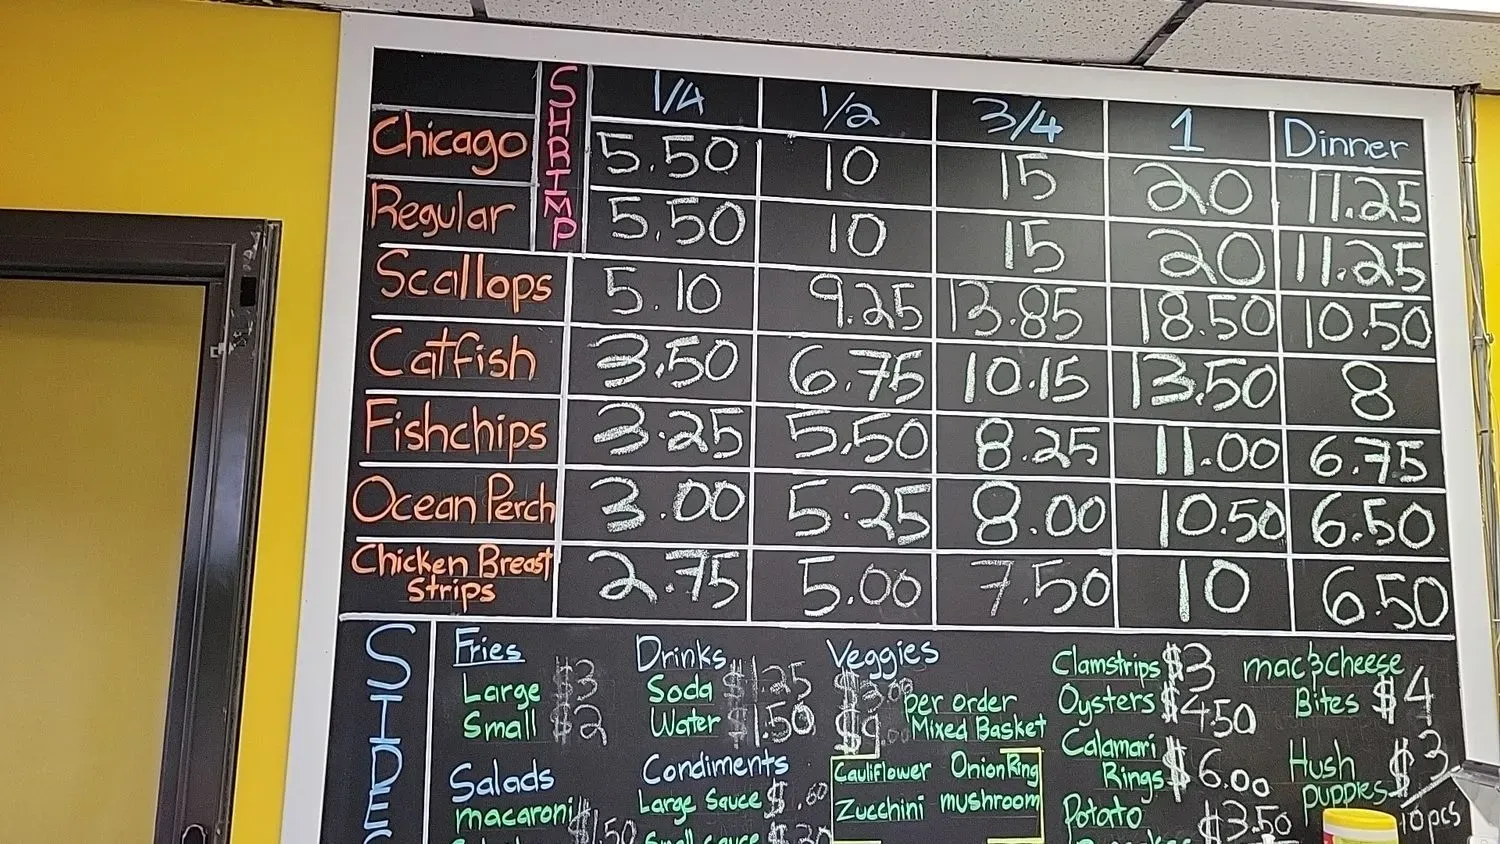 SHRIMP 1/4 1/2 3/4 1 Dinner
Chicago 5.50 10 15 20 11.25
Regular 5.50 10 15 20 11.25
Scallops 5.10 9.25 13.85 18.50 10.50
Catfish 3.50 6.75 10.15 13.50 8
Fishchips 3.25 5.50 8.25 11.00 6.75
Ocean Perch 3.00 5.25 8.00 10.50 6.50
Chicken Breast
Strips 2.75 5.00 7.50 10 6.50
SIDES
Fries
Large $3
Small $2
Salads
macaroni $1.50
Drinks
Soda $1.25
Water $1.50
Condiments
Large Sauce $.60
Small sauce
Veggies
$3.00 per order
$9.00 Mixed Basket
Cauliflower Onion Ring
Zucchini mushroom
Clamstrips $3
Oysters $4.50
Calamari
Rings $6.00
Potato
$3.50
mac & cheese
Bites $4
Hush
puppies $3
10pcs